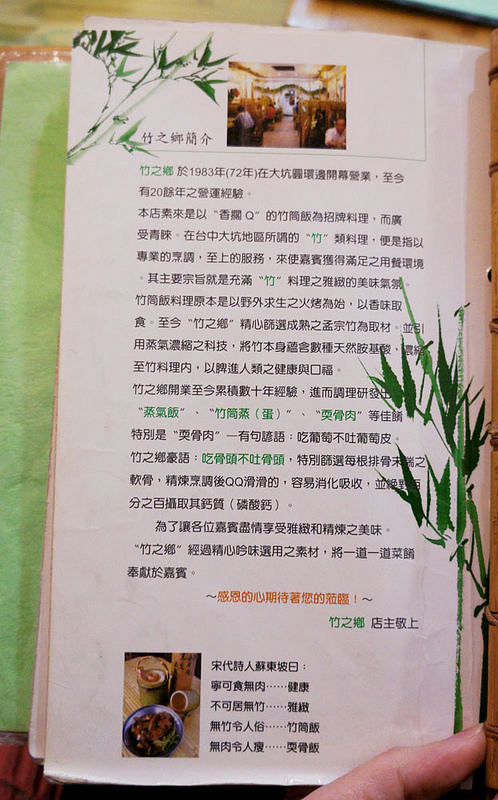 竹之鄉簡介
竹之鄉 於1983年(72年)在大坑圓環邊開幕營業，至今
有20餘年之營運經驗。
本店素來是以“香爛Q”的竹筒飯為招牌料理，而廣
受青睞。在台中大坑地區所謂的“竹”類料理，便是指以
專業的烹調，至上的服務，來使嘉賓獲得滿足之用餐環境
。其主要宗旨就是充滿“竹”料理之雅緻的美味氣氛。
竹筒飯料理原本是以野外求生之火烤為始，以香味取
食。至今“竹之鄉”精心篩選成熟之孟宗竹為取材。並引
用蒸氣濃縮之科技，將竹本身蘊含數種天然胺基酸，濃縮
至竹料理內，以脾進人類之健康與口福。
竹之鄉開業至今累積數十年經驗，進而調理研發出
“蒸氣飯”、“竹筒蒸（蛋）”、“耍骨肉”等佳餚
特別是“耍骨肉”一有句諺語：吃葡萄不吐葡萄皮。
竹之鄉豪語：吃骨頭不吐骨頭，特別篩選每根排骨末端之
軟骨，精煉烹調後QQ滑滑的，容易消化吸收，並絕對百
分之百攝取其鈣質（磷酸鈣）。
為了讓各位嘉賓盡情享受雅緻和精煉之美味。
“竹之鄉”經過精心吟味選用之素材，將一道一道菜餚
奉獻於嘉賓。
～感恩的心期待著您的蒞臨！～
竹之鄉 店主敬上
宋代詩人蘇東坡曰：
寧可食無肉……健康
不可居無竹……雅緻
無竹令人俗……竹筒飯
無肉令人瘦……耍骨飯